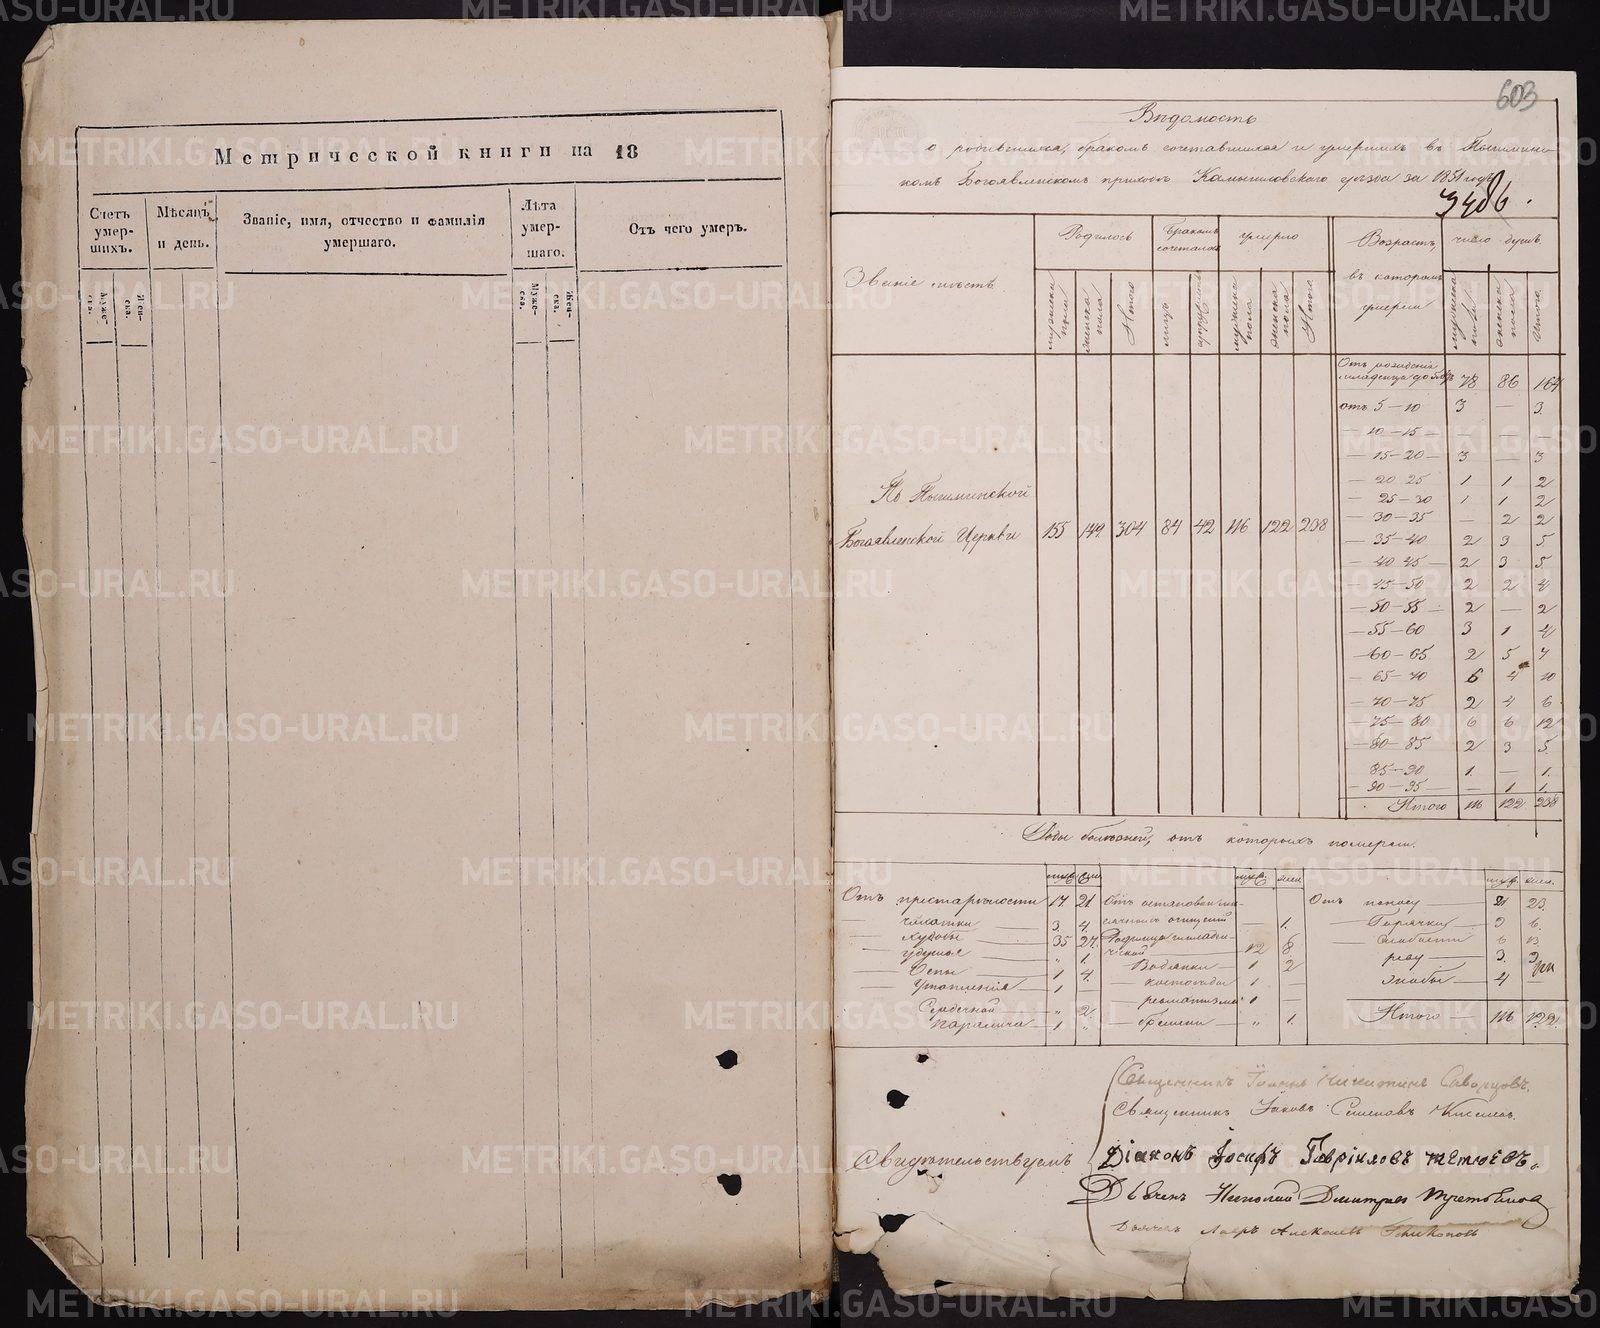 Метрической книги на 18
Счетъ умер-шихъ.
Муже-ска.
Жен-ска.
Мѣсяцъ и день.
Званіе, имя, отчество и фамилія умершаго.
Лѣта умер-шаго.
Муже-ска.
Жен-ска.
Отъ чего умеръ.
603
Вѣдомость
о родившихся, бракомъ сочетавшихся и умершихъ въ Пышминс-
комъ Богоявленскомъ приходѣ Камышловскаго уѣзда за 1851 годъ
3486.
Званіе мѣстъ
Родилось
Бракомъ сочеталось
умерло
Возрастъ, въ которомъ умерли
число душъ
мужска пола
женска пола
Итого
лицъ
мужска пола
женска пола
Итого
мужска пола
женска пола
Итого
Въ Пышминской
Богоявленской Церкви 155 149 304 84 42 116 122 238
Отъ рожденія младенцы до 5 78 86 164
отъ 5–10 3 — 3
— 10–15 — — — —
— 15–20 — 3 — 3
— 20 25 1 1 2
— 25–30 1 1 2
— 30–35 — 2 2
— 35–40 2 3 5
— 40 45 — 2 3 5
— 45–50 2 2 4
— 50–55 — 2 — 2
— 55–60 3 1 4
— 60–65 2 5 7
— 65–70 6 4 10
— 70–75 2 4 6
— 75–80 6 6 12
— 80–85 2 3 5
85–90 1 — 1
— 90–95 — 1 1
Итого 116 122 238
Роды болѣзней, отъ которыхъ померли.
муж. жен.
Отъ престарѣлости 17 21
— чахотки 3 4
— худобы 35 27
удушья " 1
— Оспы — 1 4
— Утопленія — 1 —
Сердечной " 2
паралича — 1 "
муж. жен.
Отъ остановки мѣ-
сячныхъ очищеній — 1
Родимца младен-
ческой 12 8
— Водянки — 1 2
— костоѣды 1 —
— ревматизма 1 —
— бремени — " 1
муж. жен.
Отъ поносу 21 23
— Горячки 6
— Слабости 6 13
— рѣзу 3 3
— знобы — 4 —
Итого — 116 122
Свидѣтельствуемъ
Священникъ Іоаннъ Никитинъ Словцовъ.
Священникъ Іаковъ Семеновъ Киселевъ.
Діаконъ Іосифъ Гавріиловъ Тетюевъ.
Дьячекъ Николай Дмитріевъ Третьяковъ
Дьячекъ Лавръ Алексѣевъ
METRIKI.GASO-URAL.RU